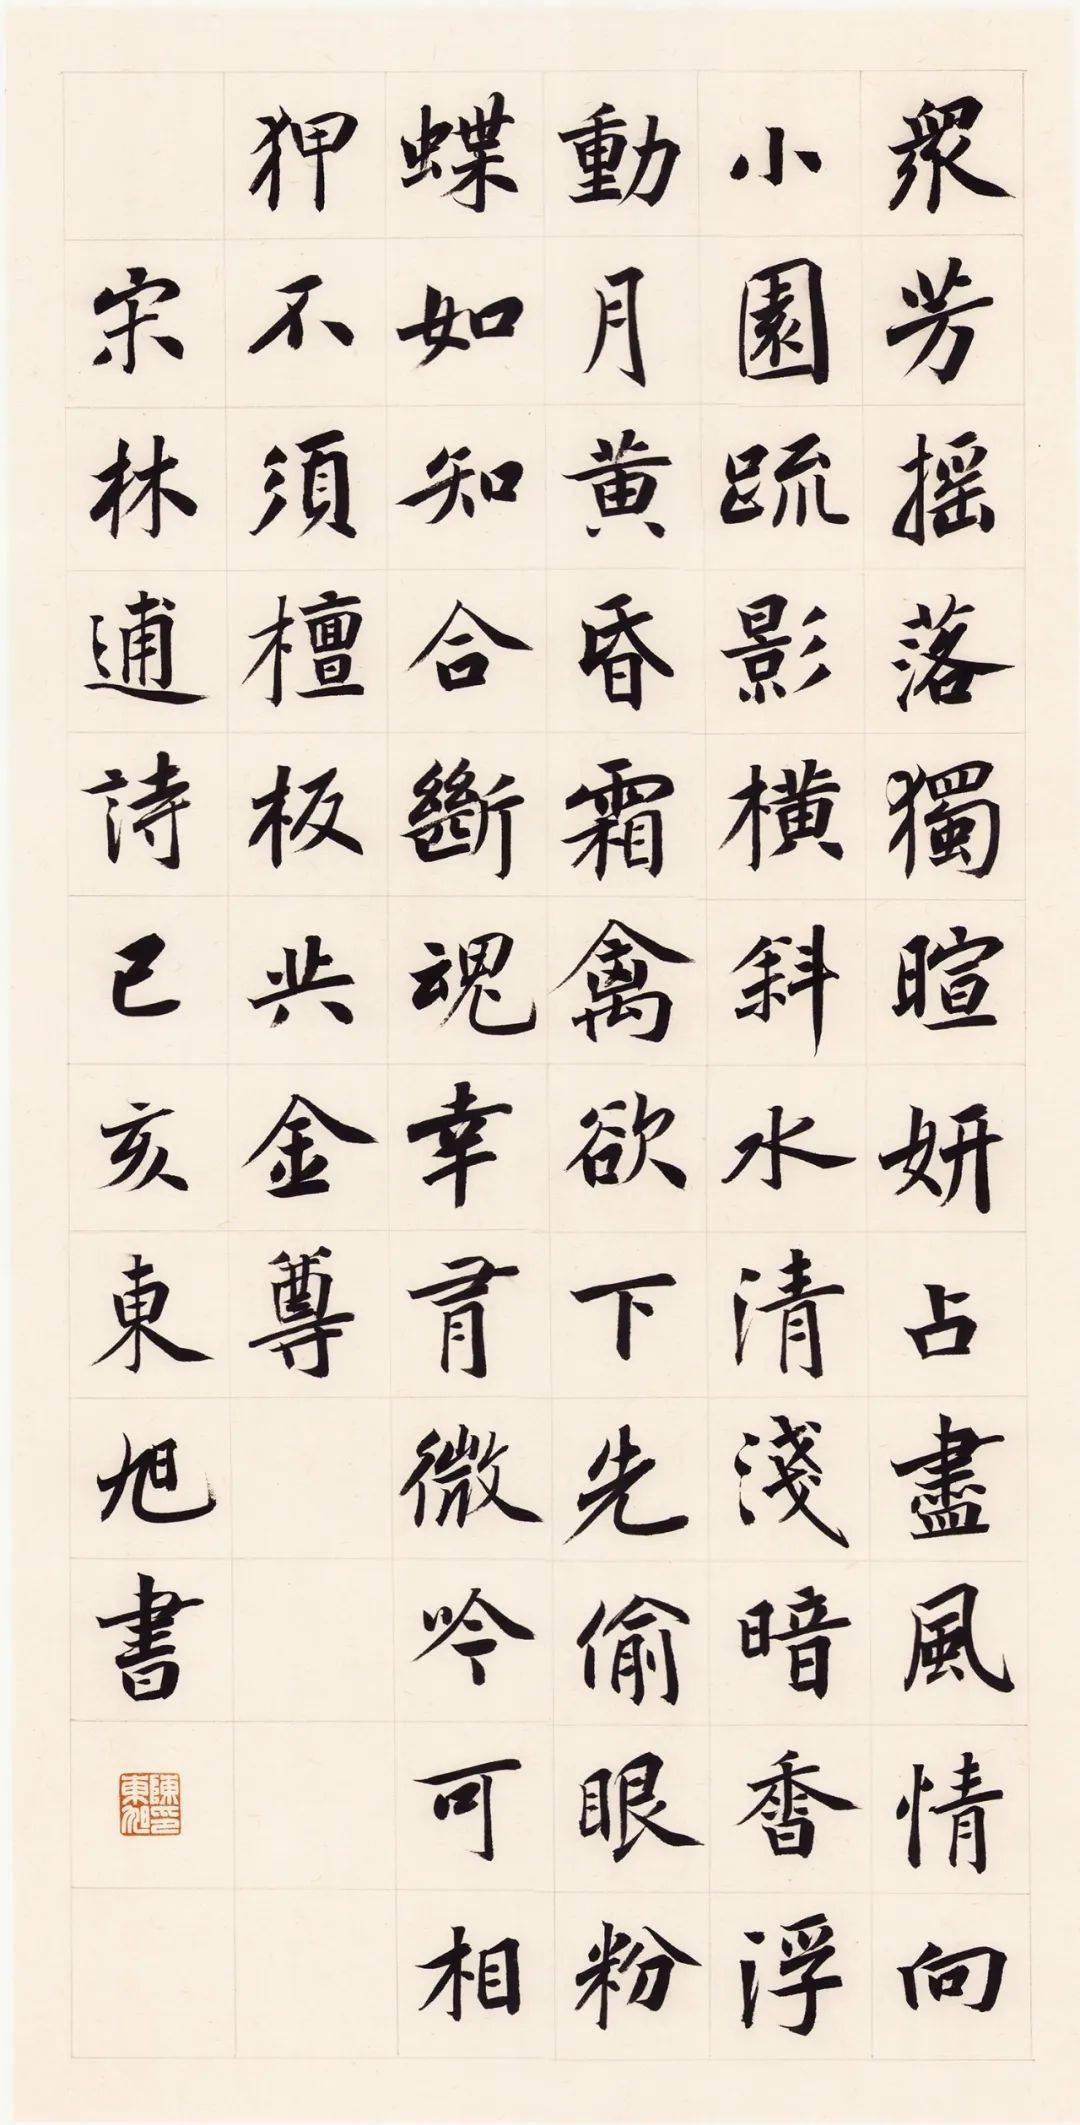 眾芳摇落獨暄妍占盡風情向
小園疏影橫斜水清淺暗香浮
動月黄昏霜禽欲下先偷眼粉
蝶如知合斷魂幸有微吟可相
狎不須檀板共金尊
宋林逋詩己亥東旭書
陳東旭印